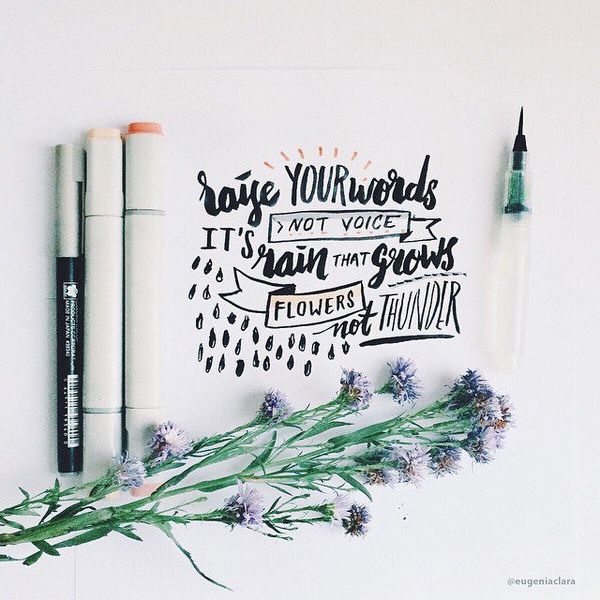 raise YOUR words
NOT VOICE
IT'S rain THAT grows
FLOWERS
not THUNDER
MADE IN JAPAN
@eugeniaclara